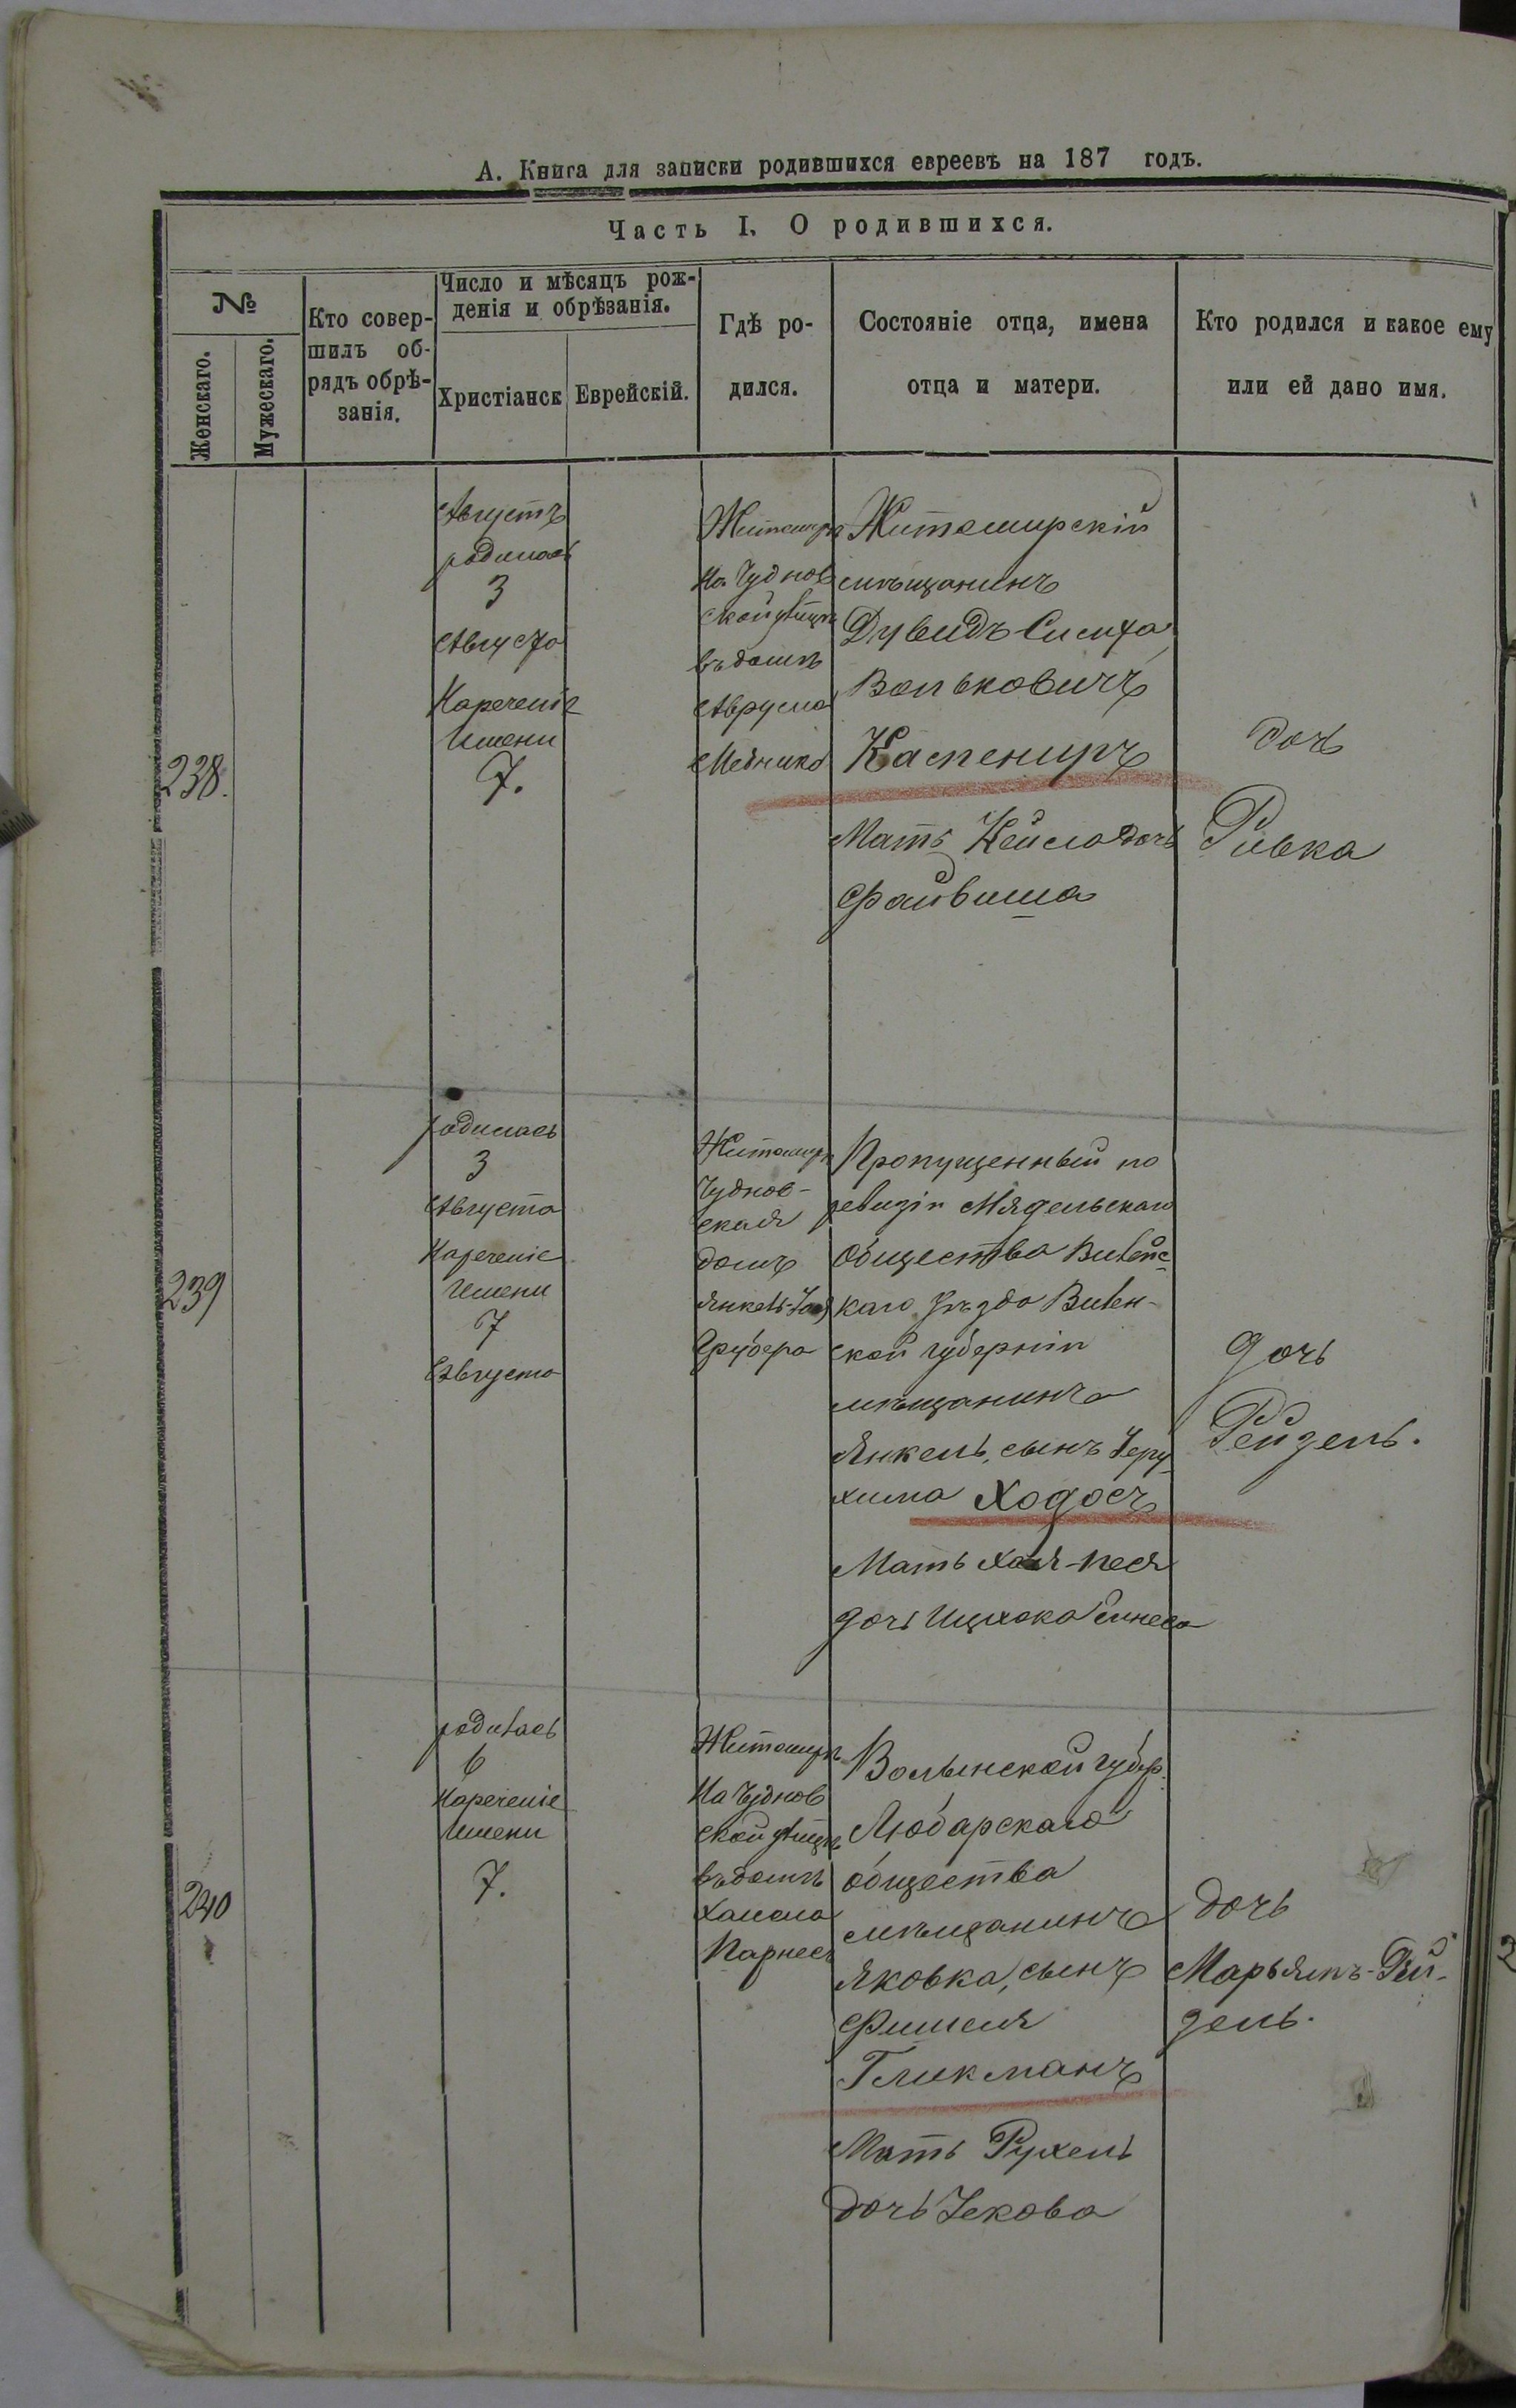 А. Книга для записки родившихся евреевъ на 187 годъ.
Часть I. О родившихся.
№
Женскаго.
Мужескаго.
Кто совер-
шилъ об-
рядъ обрѣ-
занія.
Число и мѣсяцъ рож-
денія и обрѣзанія.
Христіанск
Еврейскій.
Гдѣ ро-
дился.
Состояніе отца, имена
отца и матери.
Кто родился и какое ему
или ей дано имя.
238.
Августъ
родилась
3
Августа
Нареченіе
Имени
7.
Житомиръ
На Чуднов
ской улицѣ
въ домѣ
Аврума
Житомирскій
мѣщанинъ
Дувидъ Симха
Вольковичъ
Каспениръ
Мать Нейса дочь
Файвиша
дочь
Ривка
239
родилась
3
Августа
Нареченіе
Имени
7
Августа
Житомиръ
Чуднов-
ская
домъ
Грубера
Пропущенный по
ревизіи Мядельскаго
Общества Вилейс-
каго уѣзда Вилен-
ской губерніи
мѣщанинъ
Янкель, сынъ Іеру-
хима Ходосъ
Мать Хая-Песя
дочь Ицхока
дочь
Рейзель.
240
родилась
6
Нареченіе
Имени
7.
Житомиръ
На Чуднов
ской улицѣ
въ домѣ
Парнесъ
Волынской губер.
Любарскаго
общества
мѣщанинъ
Яковка, сынъ
Фишеля
Гликманъ
Мать Рухель
дочь Іекова
дочь
Марьямъ-Рей-
зель.
2